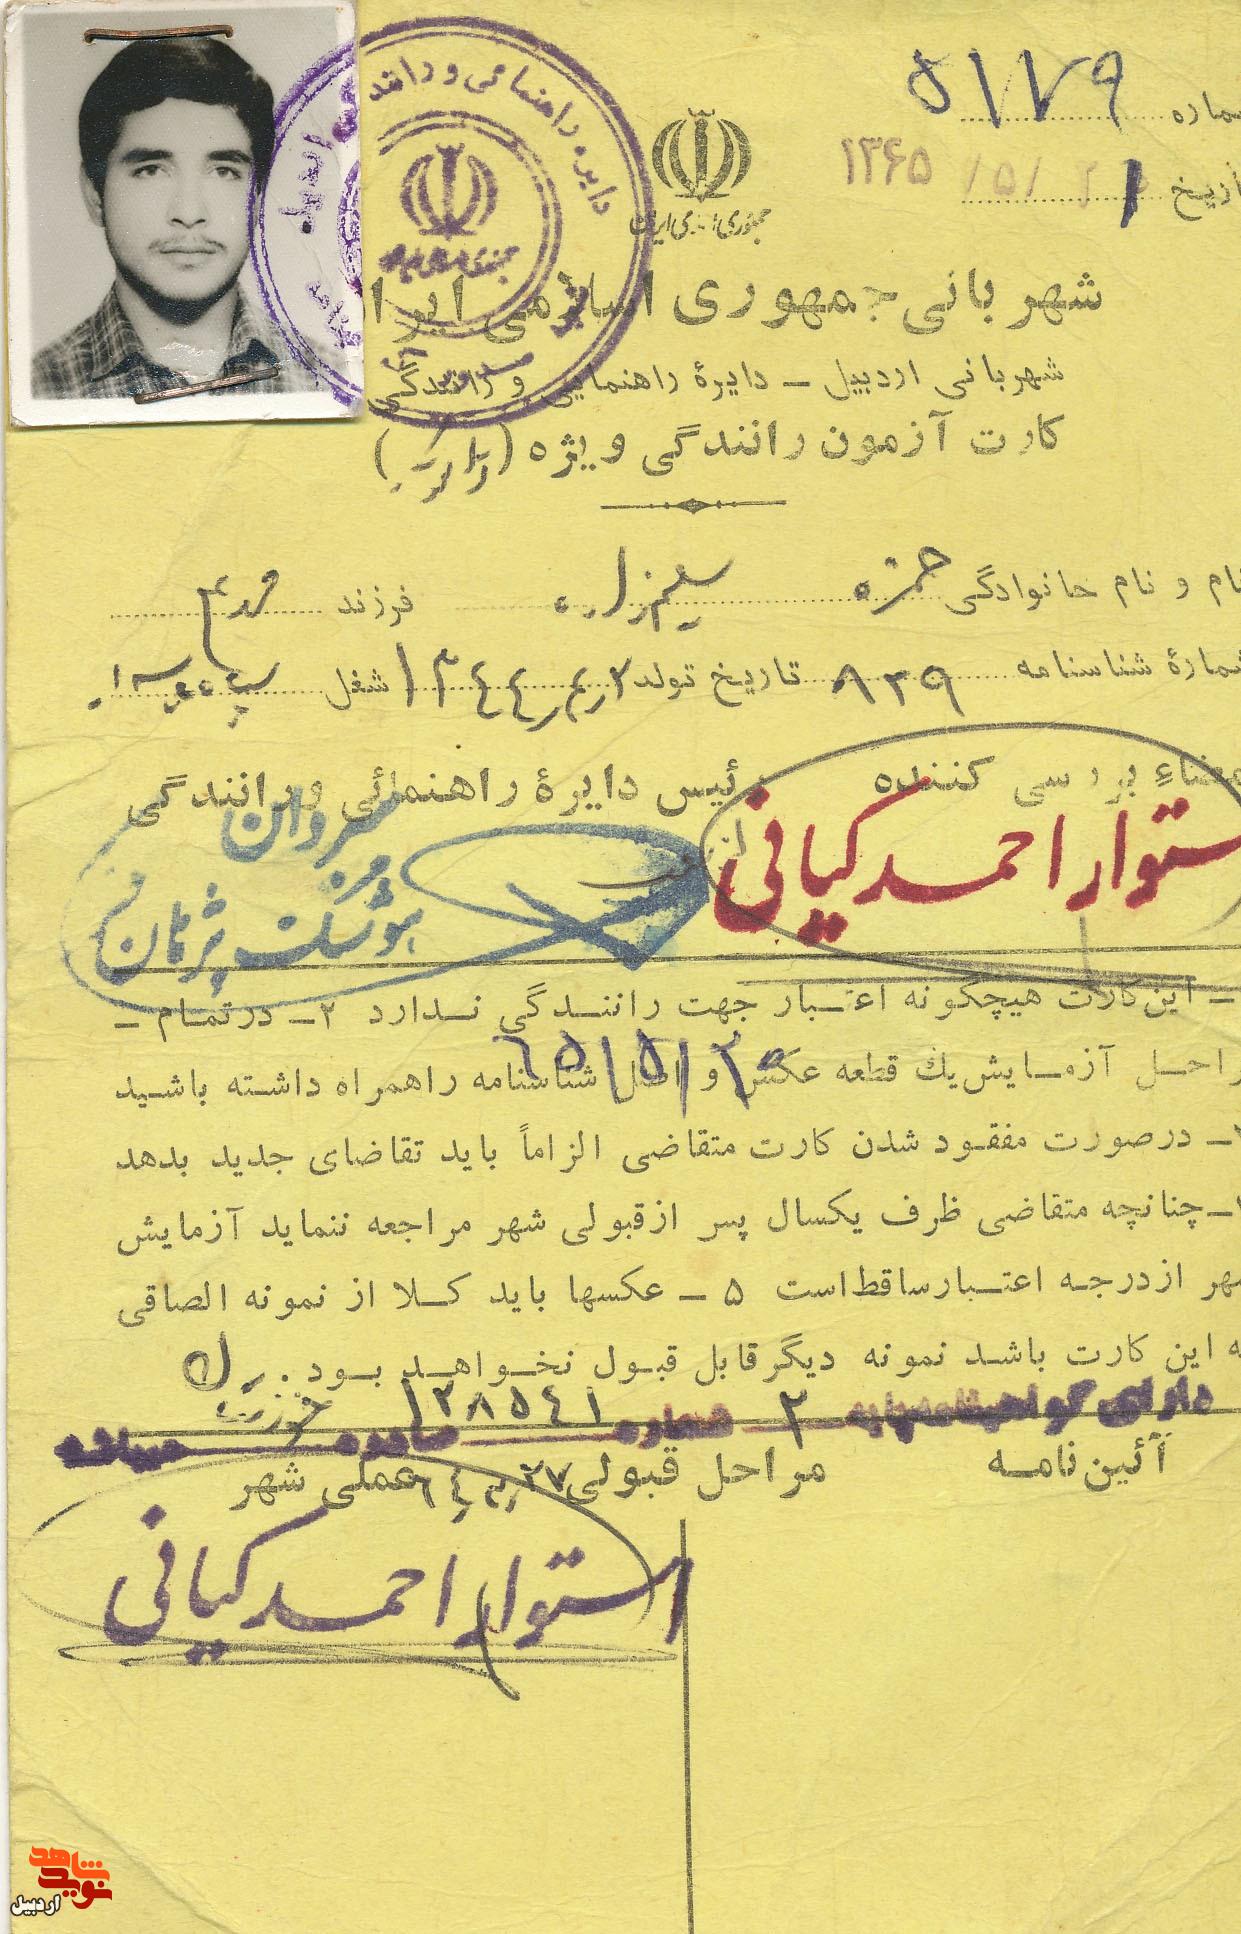 ۵۱۷۹
شماره
۱۳۶۵ /۵/
تاریخ
جمهوری اسلامی ایران
دایره راهنمائی و رانندگی
شهربانی جمهوری اسلامی ایران
شهربانی اردبیل – دایرهٔ راهنمایی و رانندگی
کارت آزمون رانندگی ویژه (
نام و نام خانوادگی حمزه فرزند
شمارهٔ شناسنامه ۸۳۹ تاریخ تولد ۱۳۴۴ شغل
امضاءِ بررسی کننده رئیس دایرهٔ راهنمائی و رانندگی
ستوار احمد کیانی
سروان
هوشنگ پژمان
– این کارت هیچگونه اعتبار جهت رانندگی ندارد ۲– درتمام –
راحل آزمایش یك قطعه عکس و اصل شناسنامه راهمراه داشته باشید
۶۵/۵/۲۰
– درصورت مفقود شدن کارت متقاضی الزاماً باید تقاضای جدید بدهد
–چنانچه متقاضی ظرف یکسال پس ازقبولی شهر مراجعه ننماید آزمایش
شهر ازدرجه اعتبارساقط است ۵ – عکسها باید کلا از نمونه الصاقی
به این کارت باشد نمونه دیگرقابل قبول نخواهد بود.
دارای گواهینامه پایه ۲ شماره ۱۳۸۵۴۱ صادره
آئین نامه مراحل قبولی عملی شهر
استوار احمد کیانی
نوید شاهد
اردبیل